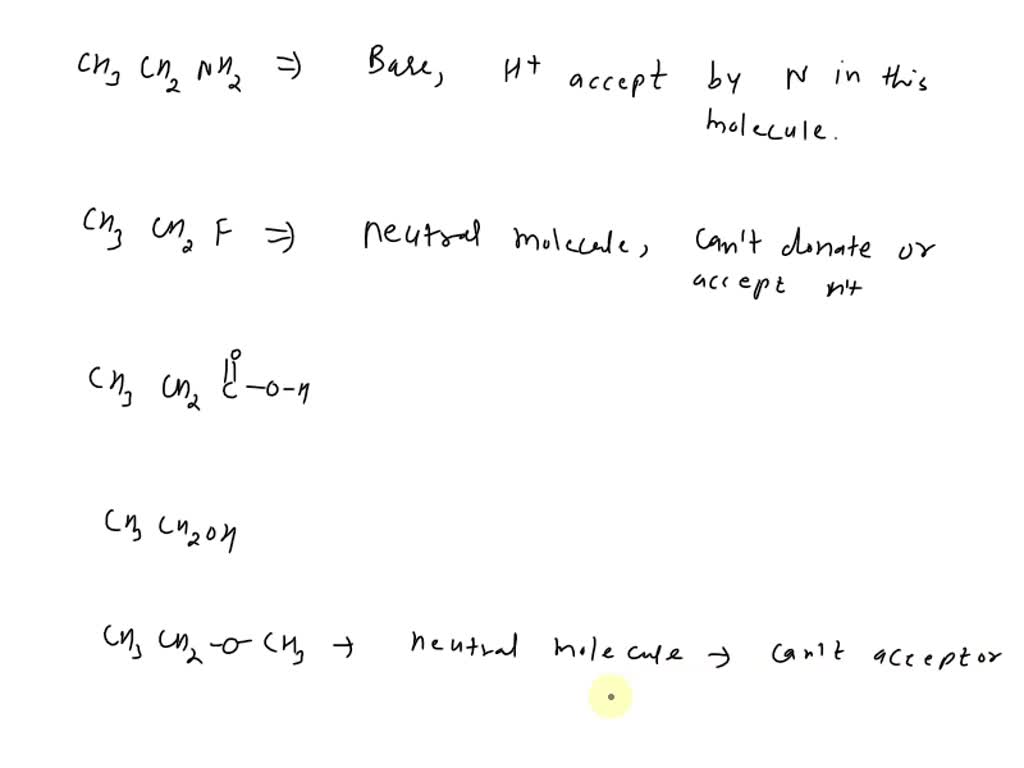 CH₃ CH₂ NH₂ ⇒ Base, H⁺ accept by N in this
molecule.
CH₃ CH₂ F ⇒ neutral molecule, can't donate or
accept H⁺
O
CH₃ CH₂ C–O–H
CH₃ CH₂OH
CH₃ CH₂–O–CH₃ → neutral molecule → can't accept or